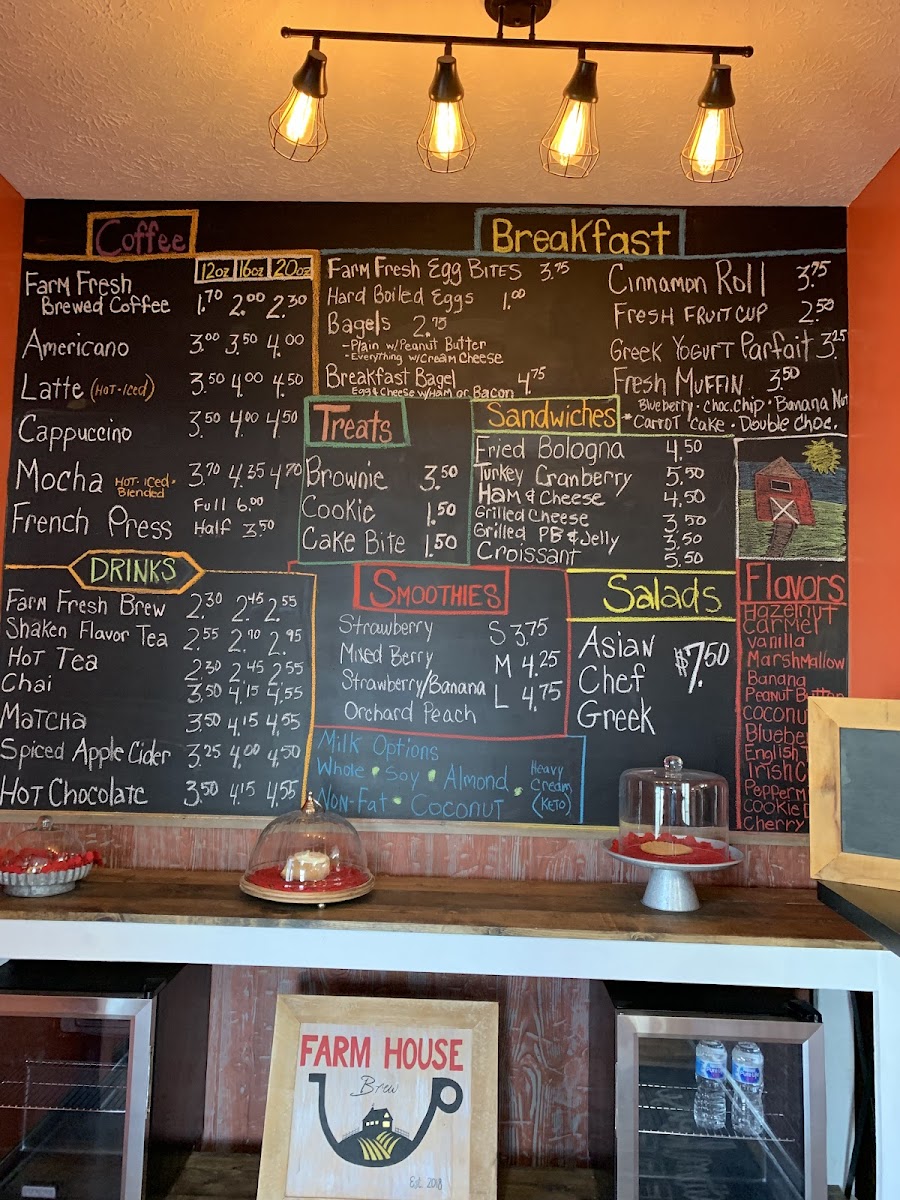 Coffee
12oz 16oz 20oz
Farm Fresh
Brewed Coffee 1.70 2.00 2.30
Americano 3.00 3.50 4.00
Latte (Hot-Iced) 3.50 4.00 4.50
Cappuccino 3.50 4.00 4.50
Mocha Hot-Iced- 3.70 4.35 4.70
Blended
French Press Full 6.00
Half 3.50
DRINKS
Farm Fresh Brew 2.30 2.45 2.55
Shaken Flavor Tea 2.55 2.70 2.95
Hot Tea 2.30 2.45 2.55
Chai 3.50 4.15 4.55
Matcha 3.50 4.15 4.55
Spiced Apple Cider 3.25 4.00 4.50
Hot Chocolate 3.50 4.15 4.55
Breakfast
Farm Fresh Egg Bites 3.75
Hard Boiled Eggs 1.00
Bagels 2.75
-Plain w/Peanut Butter
-Everything w/Cream Cheese
Breakfast Bagel 4.75
Egg & Cheese w/Ham or Bacon
Cinnamon Roll 3.75
Fresh Fruit Cup 2.50
Greek Yogurt Parfait 3.25
Fresh Muffin 3.50
Blueberry · Choc. Chip · Banana Nut
* Carrot Cake · Double Choc.
Treats
Brownie 3.50
Cookie 1.50
Cake Bite 1.50
Sandwiches
Fried Bologna 4.50
Turkey Cranberry 5.50
Ham & Cheese 4.50
Grilled Cheese 3.50
Grilled PB & Jelly 3.50
Croissant 5.50
Smoothies
Strawberry S 3.75
Mixed Berry M 4.25
Strawberry/Banana L 4.75
Orchard Peach
Milk Options
Whole · Soy · Almond ·
Non-Fat · Coconut
Heavy
Cream
(Keto)
Salads
Asian
Chef $7.50
Greek
Flavors
Hazelnut
Carmel
Vanilla
Marshmallow
Banana
Peanut Butter
Coconu
Blueber
English T
Irish C
Pepperm
Cookie D
Cherry
FARM HOUSE
Brew
Est. 2018